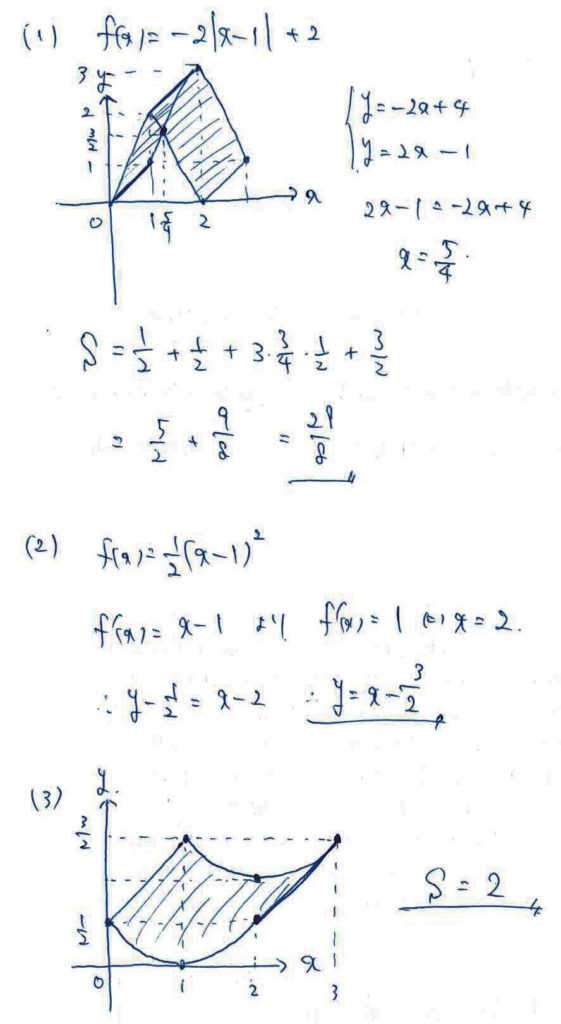 (1) f(x) = -2|x-1| + 2
3 y
2
3/2
1
0 1 5/4 2 x
{ y = -2x + 4
y = 2x - 1
2x - 1 = -2x + 4
x = 5/4.
S = 1/2 + 1/2 + 3·3/4·1/2 + 3/2
= 5/2 + 9/8 = 29/8
(2) f(x) = 1/2(x-1)^2
f'(x) = x - 1 より f'(x) = 1 ⇔ x = 2.
∴ y - 1/2 = x - 2 ∴ y = x - 3/2
(3) y
3/2
1/2
0 1 2 3 x
S = 2